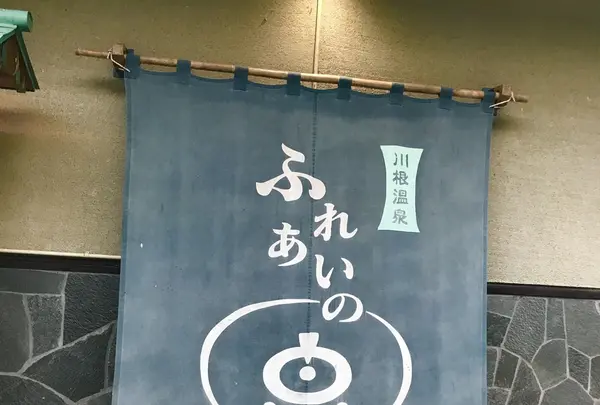 川根温泉
ふれあいの